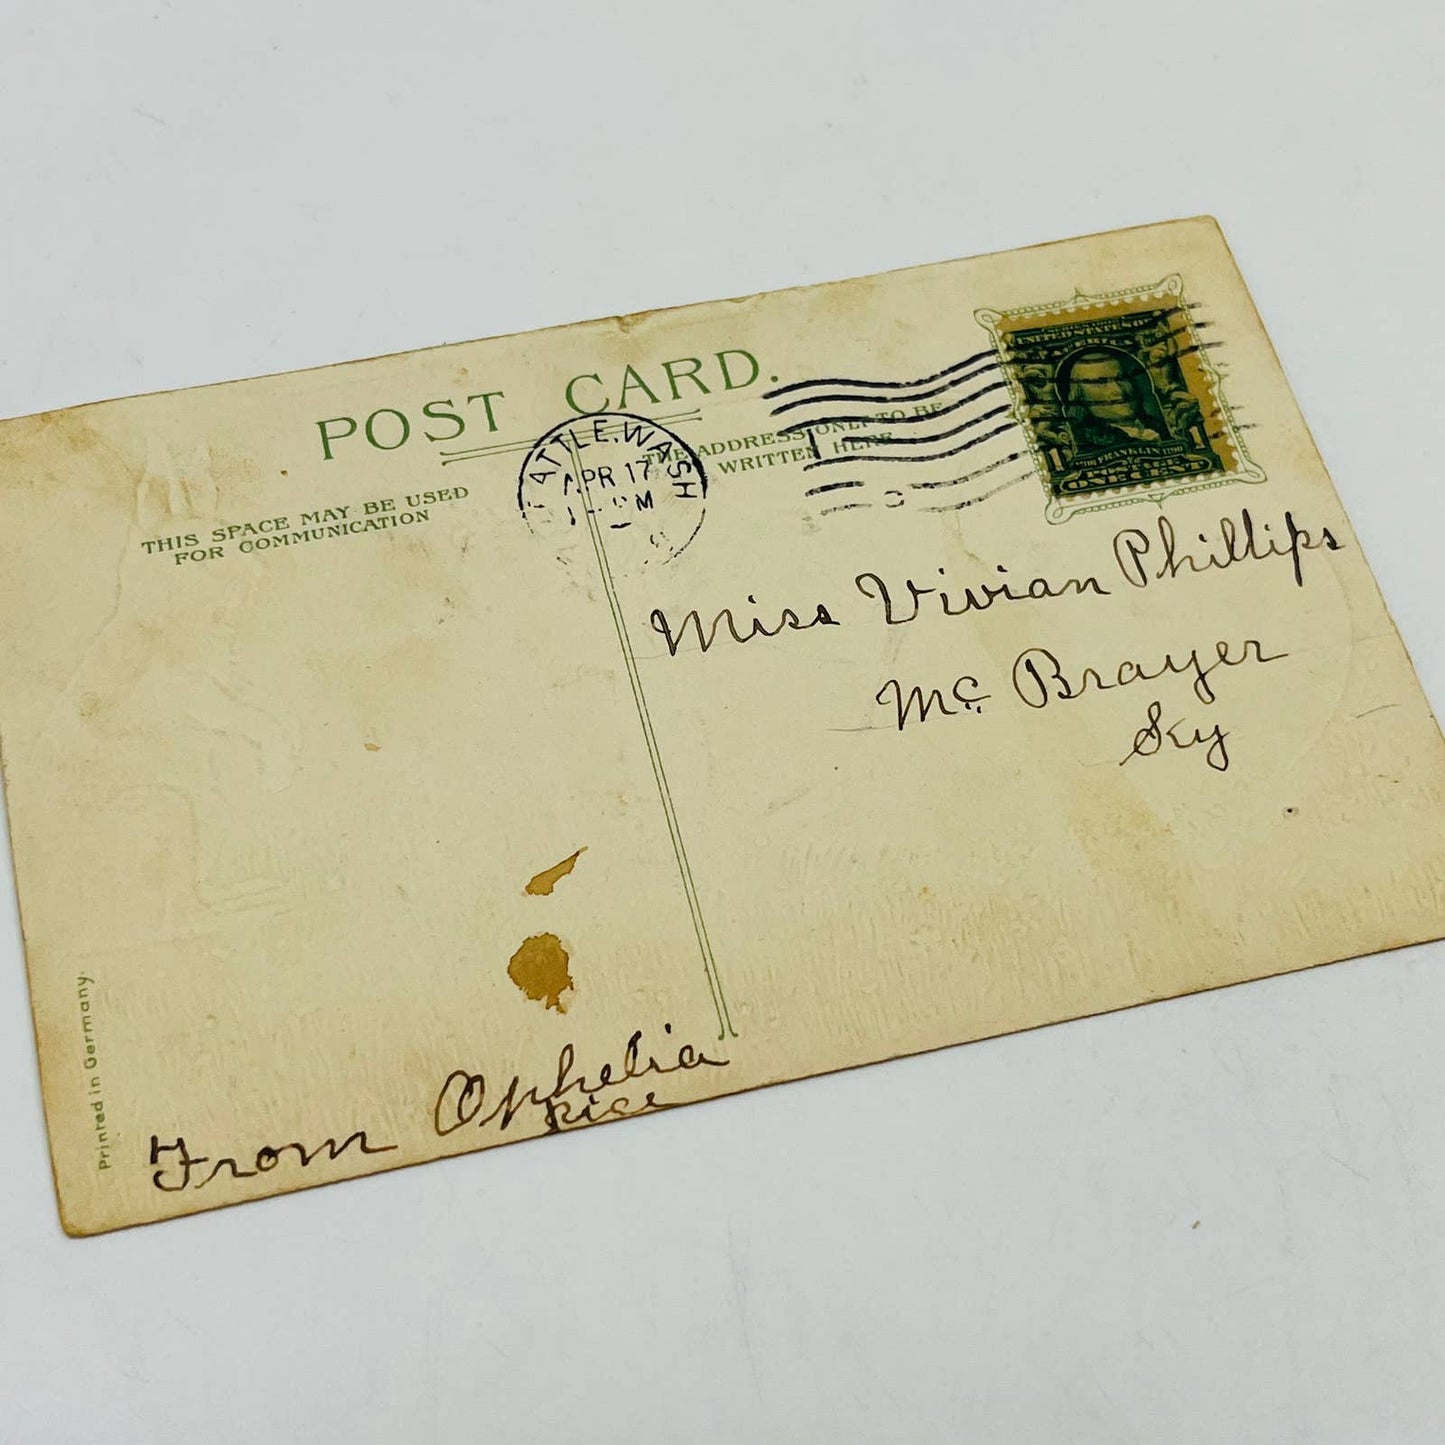 POST CARD.
THIS SPACE MAY BE USED
FOR COMMUNICATION
THE ADDRESS ONLY TO BE
WRITTEN HERE
SEATTLE, WASH
APR 17
M
UNITED STATES OF
AMERICA
1 FRANKLIN 1
ONE CENT
Miss Vivian Phillips
Mc. Brayer
Ky
From Ophelia
Rice
Printed in Germany.